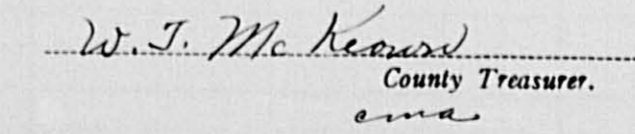 W. T. McKeown
County Treasurer.
cma